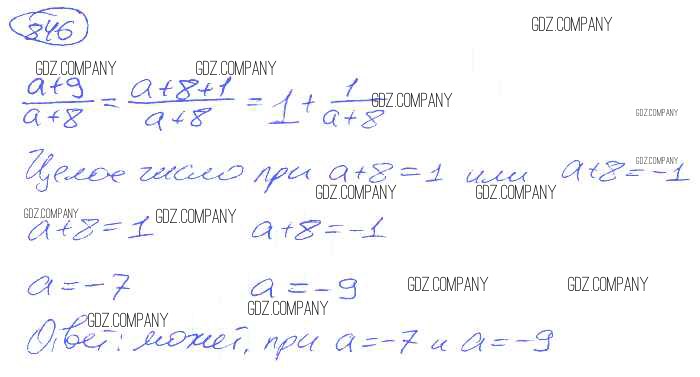 846
GDZ.COMPANY
GDZ.COMPANY GDZ.COMPANY
a+9/a+8 = a+8+1/a+8 = 1 + 1/a+8
GDZ.COMPANY
GDZ.COMPANY
GDZ.COMPANY
Целое число при a+8=1 или a+8=-1
GDZ.COMPANY GDZ.COMPANY
GDZ.COMPANY GDZ.COMPANY
a+8=1 a+8=-1
a=-7 a=-9
GDZ.COMPANY GDZ.COMPANY
GDZ.COMPANY GDZ.COMPANY
Ответ: может, при a=-7 и a=-9